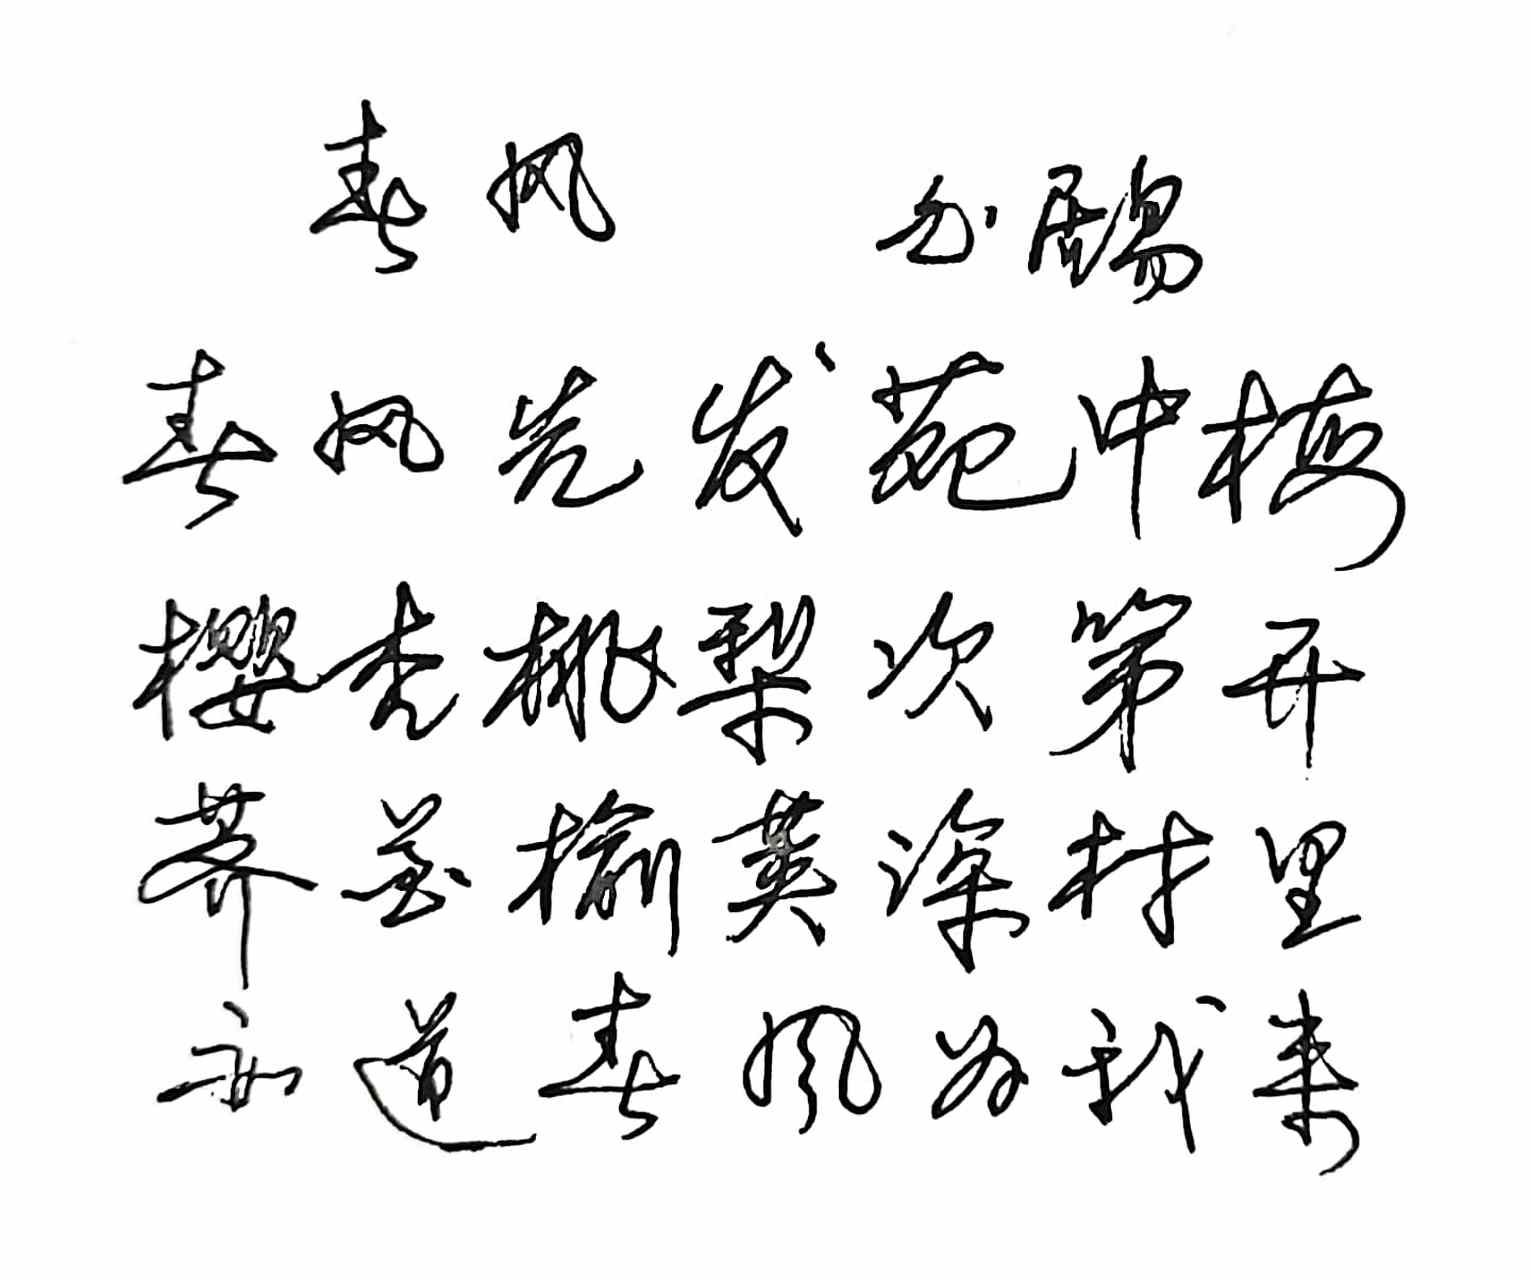 春风
春风先发苑中梅
樱杏桃梨次第开
荠花榆荚深村里
亦道春风为我来